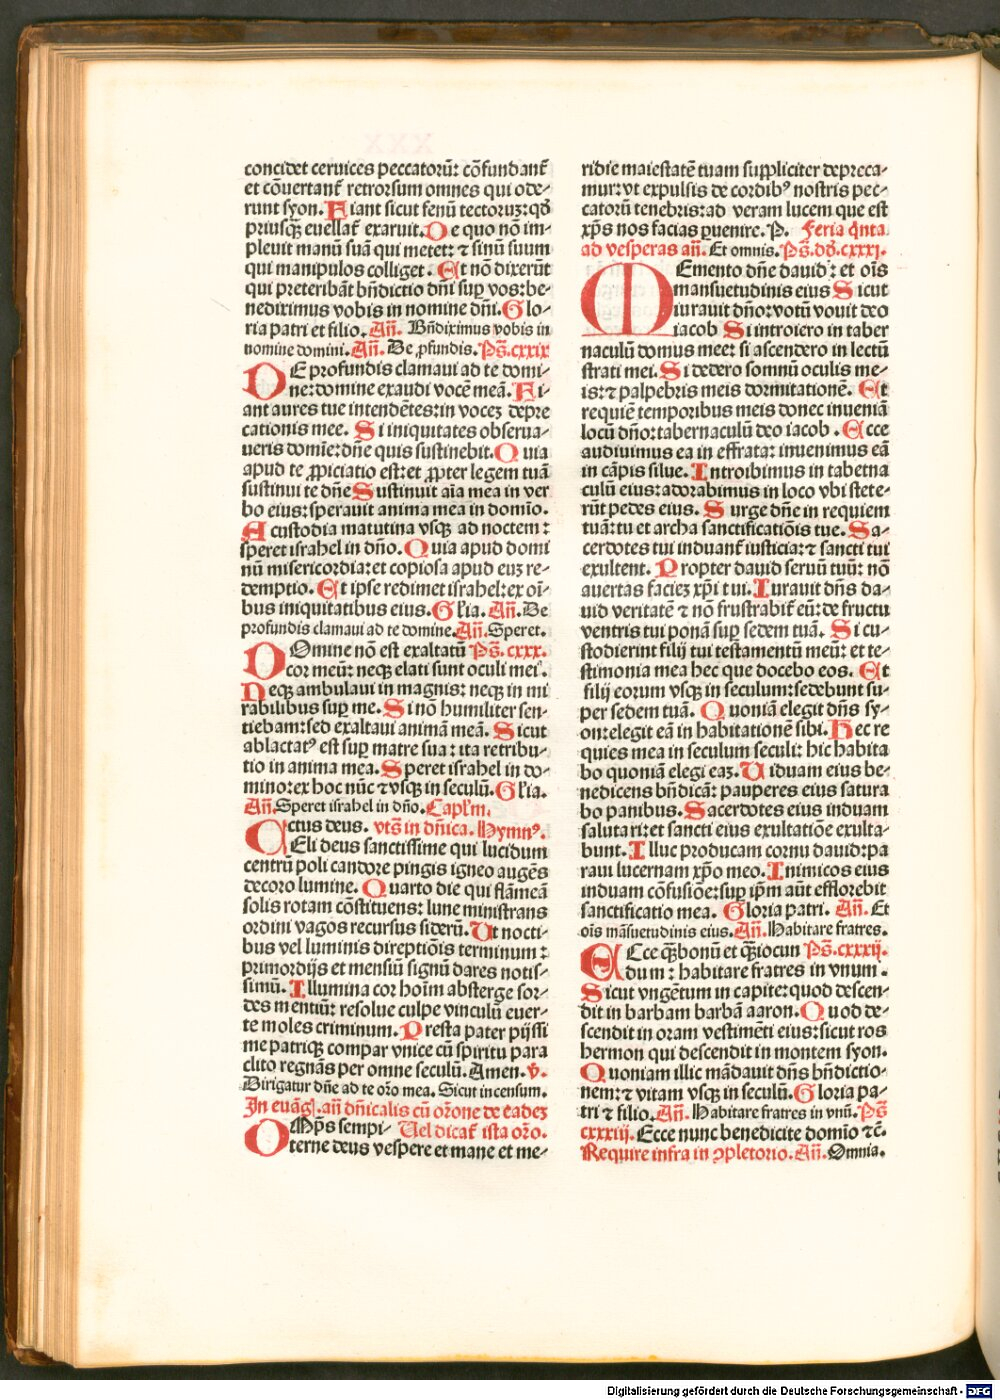 concidet cervices peccatorū: cōfundant᷑
et cōuertant᷑ retrorsum omnes qui ode⸗
runt syon. Fiant sicut fenū tectoruꝫ: qd̄
priusqꝫ euellat᷑ exaruit. De quo nō im⸗
pleuit manū suā qui metet: ⁊ sinū suum
qui manipulos colliget. Et nō dixerūt
qui preteribāt bn̄dictio dn̄i sup vos: be⸗
nediximus vobis in nomine dn̄i. Glo⸗
ria patri et filio. Añ. Bn̄diximus vobis in
nomine domini. Añ. De ꝓfundis. Ps̄. cxxix
DE profundis clamaui ad te domi⸗
ne: domine exaudi vocē meā. Fi⸗
ant aures tue intendētes: in voceꝫ depre
cationis mee. Si iniquitates obserua⸗
ueris domīe: dn̄e quis sustinebit. Quia
apud te ꝓpiciatio est: et ꝓpter legem tuā
sustinui te dn̄e Sustinuit aīa mea in ver
bo eius: sperauit anima mea in domīo.
A custodia matutina vsqꝫ ad noctem:
speret israhel in dn̄o. Quia apud domi
nū misericordia: et copiosa apud euꝫ re⸗
demptio. Et ipse redimet israhel: ex oī⸗
bus iniquitatibus eius. Gl̄ia. Añ. De
profundis clamaui ad te domine. Añ. Speret.
DOmine nō est exaltatū Ps̄. cxxx.
cor meū: neqꝫ elati sunt oculi mei.
Neqꝫ ambulaui in magnis: neqꝫ in mi
rabilibus sup me. Si nō humiliter sen⸗
tiebam: sed exaltaui animā meā. Sicut
ablactatꝰ est sup matre sua: ita retribu⸗
tio in anima mea. Speret israhel in do⸗
mino: ex hoc nūc ⁊ vsqꝫ in seculū. Gl̄ia.
Añ. Speret israhel in dn̄o. Capl̄m.
Ectus deus. vts̄ in dn̄ica. Hymnꝰ.
CEli deus sanctissime qui lucidum
centrū poli candore pingis igneo augēs
decoro lumine. Quarto die qui flāmeā
solis rotam cōstituens: lune ministrans
ordini vagos recursus siderū. Ut nocti⸗
bus vel luminis direptiōis terminum:
primordijs et mensiū signū dares notis⸗
simū. Illumina cor hoīm absterge sor⸗
des mentiū: resolue culpe vinculū euer⸗
te moles criminum. Presta pater pijssi
me patriqꝫ compar vnice cū spiritu para
clito regnās per omne seculū. Amen. v̄.
Dirigatur dn̄e ad te or̄o mea. Sicut incensum.
In euāgl̄. añ dn̄icalis cū or̄one de eadeꝫ
OMp̄s sempi⸗ Uel dicat᷑ ista or̄o.
terne deus vespere et mane et me⸗
ridie maiestatē tuam suppliciter depreca⸗
mur: vt expulsis de cordibꝰ nostris pec⸗
catorū tenebris: ad veram lucem que est
xp̄s nos facias ꝑuenire. P. Feria q̄nta
ad vesperas añ. Et omnis. Ps̄. dd̄. cxxxi.
MEmento dn̄e dauid: et oīs
mansuetudinis eius Sicut
iurauit dn̄o: votū vouit deo
iacob Si introiero in taber
naculū domus mee: si ascendero in lectū
strati mei. Si dedero somnū oculis me⸗
is: ⁊ palpebris meis dormitationē. Et
requiē temporibus meis donec inueniā
locū dn̄o: tabernaculū deo iacob. Ecce
audiuimus ea in effrata: inuenimus eā
in cāpis silue. Introibimus in tabetna
culū eius: adorabimus in loco vbi stete⸗
rūt pedes eius. Surge dn̄e in requiem
tuā: tu et archa sanctificatiōis tue. Sa⸗
cerdotes tui induant᷑ iusticia: ⁊ sancti tui
exultent. Propter dauid seruū tuū: nō
auertas facieꝫ xp̄i tui. Iurauit dn̄s da⸗
uid veritatē ⁊ nō frustrabit᷑ eū: de fructu
ventris tui ponā sup sedem tuā. Si cu⸗
stodierint filij tui testamentū meū: et te⸗
stimonia mea hec que docebo eos. Et
filij eorum vsqꝫ in seculum: sedebunt su⸗
per sedem tuā. Quoniā elegit dn̄s sy⸗
on: elegit eā in habitationē sibi. Hec re
quies mea in seculum seculi: hic habita
bo quoniā elegi eaꝫ. Uiduam eius be⸗
nedicens bn̄dicā: pauperes eius satura
bo panibus. Sacerdotes eius induam
salutari: et sancti eius exultatiōe exulta⸗
bunt. Illuc producam cornu dauid: pa
raui lucernam xp̄o meo. Inimicos eius
induam cōfusiōe: sup ip̄m aūt efflorebit
sanctificatio mea. Gloria patri. Añ. Et
oīs māsuetudinis eius. Añ. Habitare fratres.
ECce q̄ꝫ bonū et q̄ꝫ iocun Ps̄. cxxxij.
dum: habitare fratres in vnum.
Sicut vngētum in capite: quod descen⸗
dit in barbam barbā aaron. Quod de⸗
scendit in oram vestimēti eius: sicut ros
hermon qui descendit in montem syon.
Quoniam illic mādauit dn̄s bn̄dictio⸗
nem: ⁊ vitam vsqꝫ in seculū. Gloria pa⸗
tri ⁊ filio. Añ. Habitare fratres in vnū. Ps̄
cxxxiij. Ecce nunc benedicite domīo ⁊c̄.
Require infra in ꝯpletorio. Añ. Omnia.
Digitalisierung gefördert durch die Deutsche Forschungsgemeinschaft - DFG